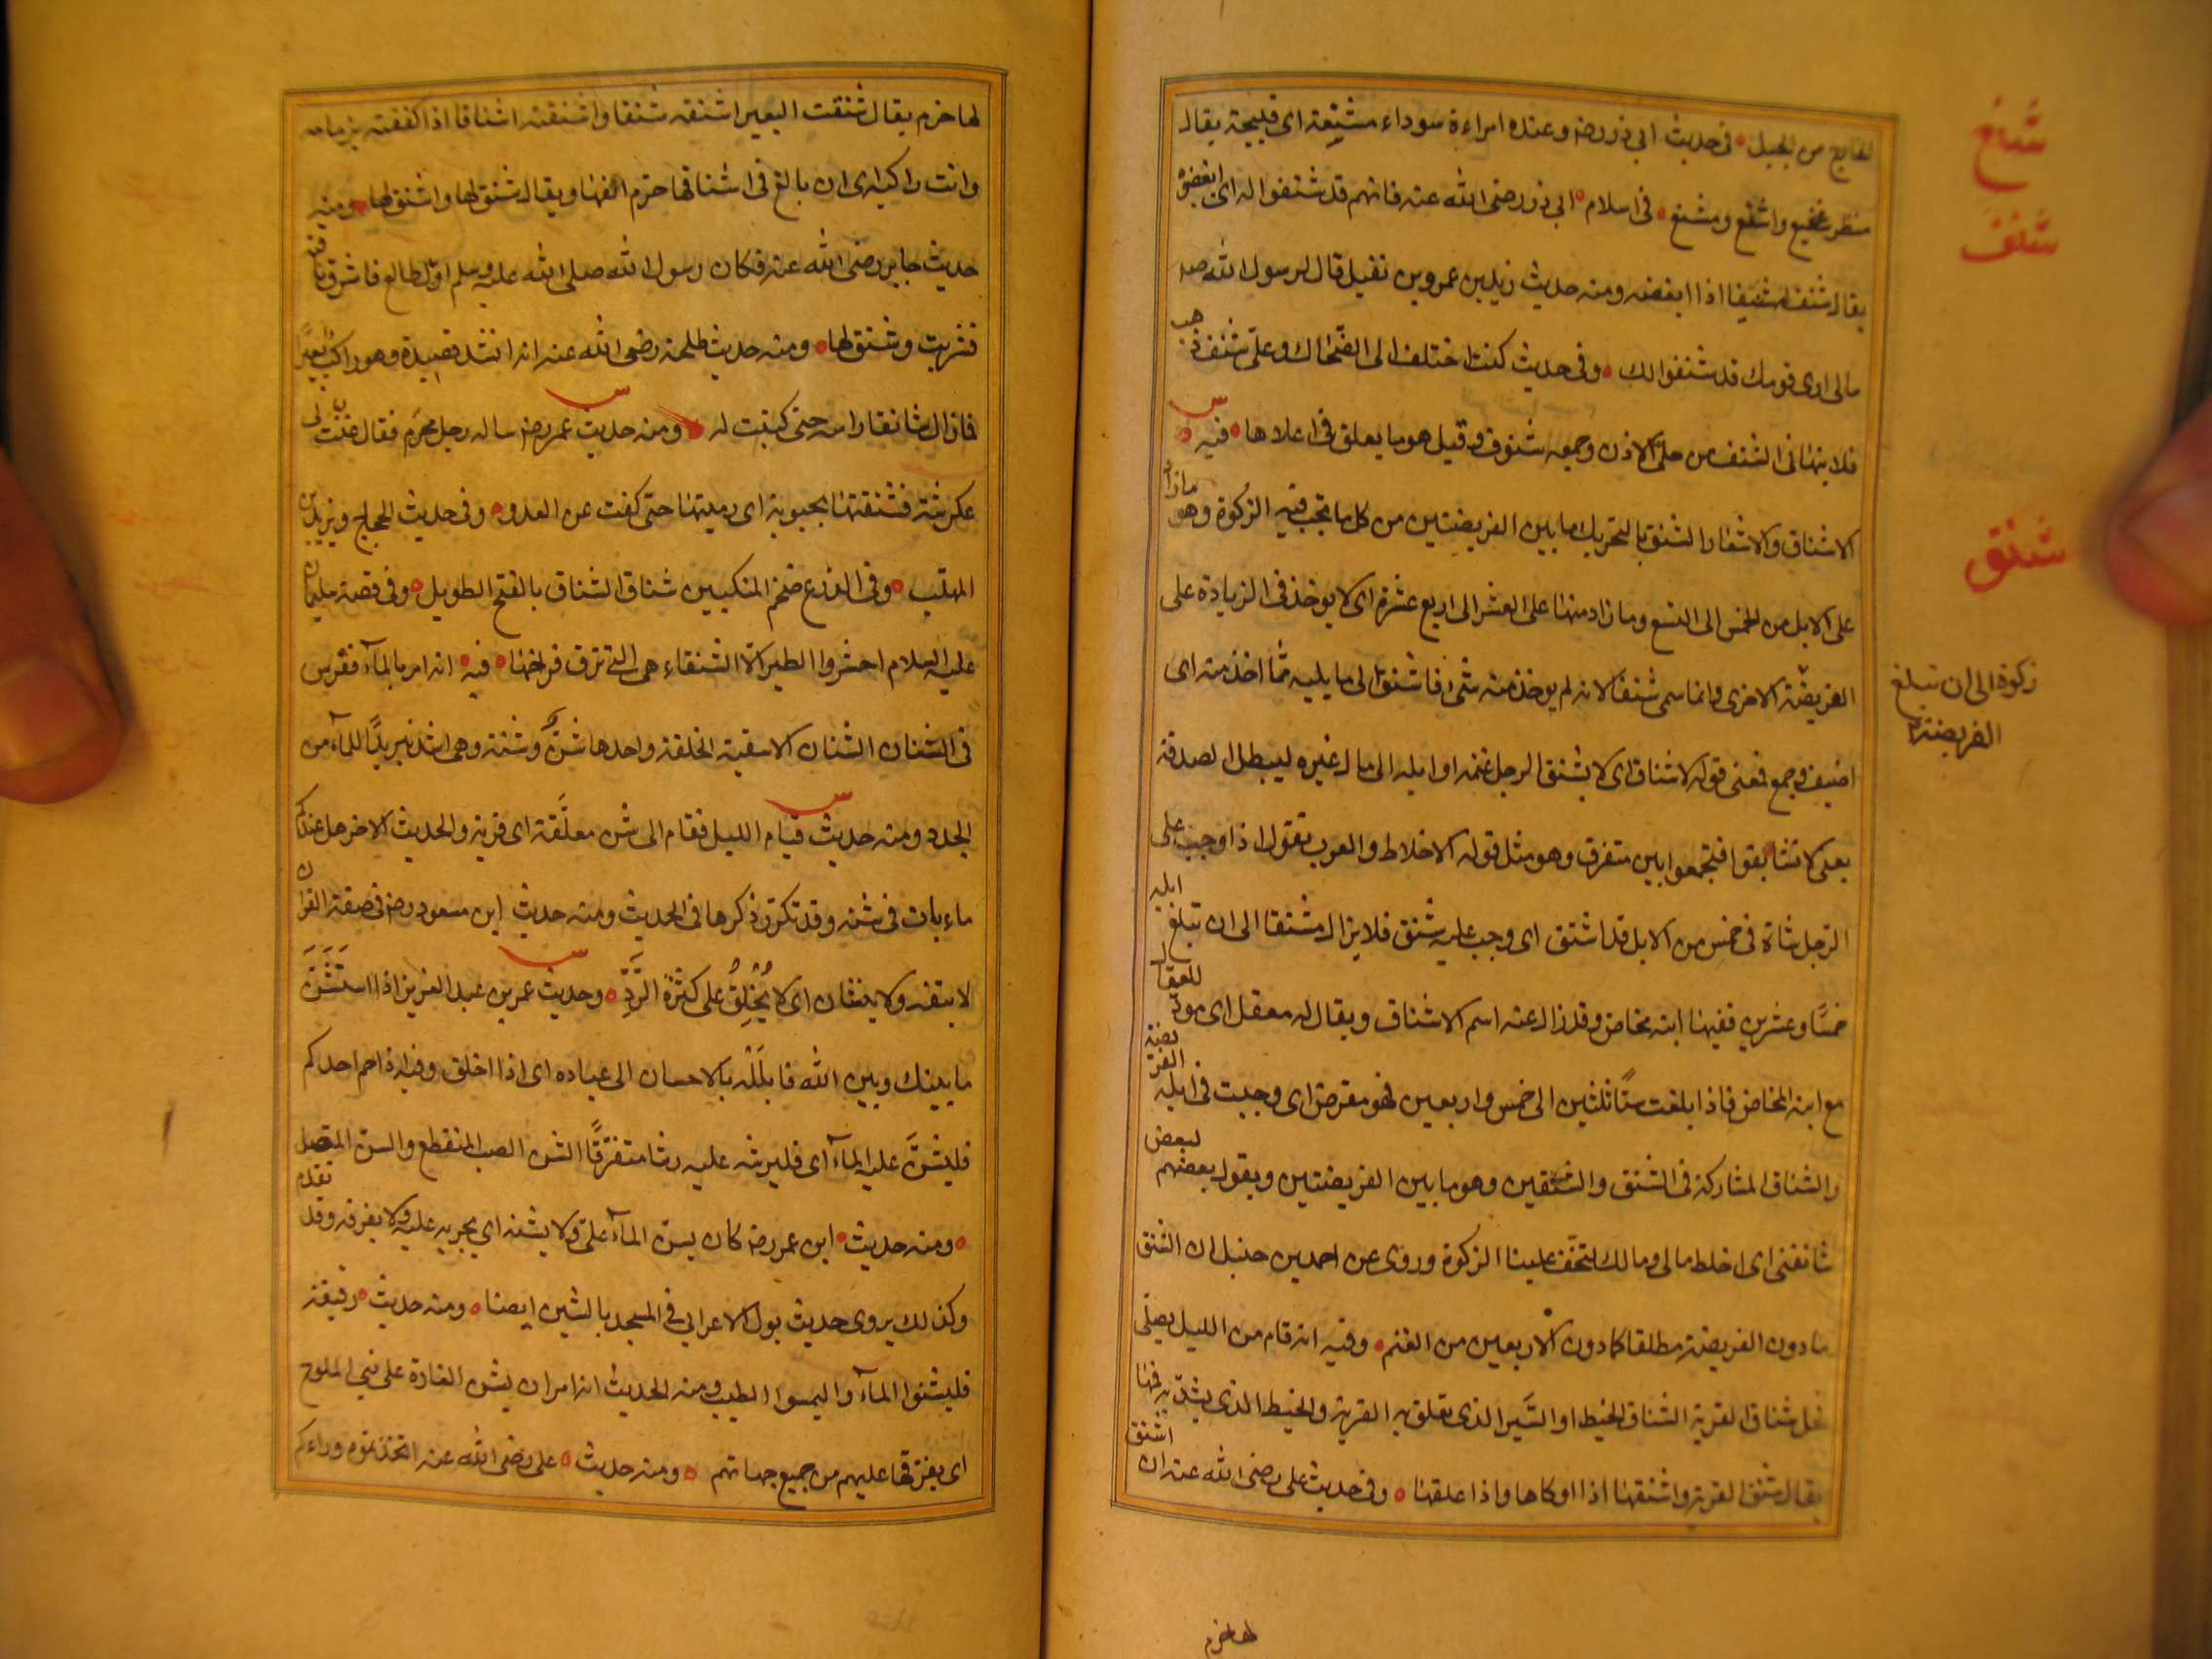 الخارج من الجبل في حديث ابي ذر رضه وعنده امراءة سوداء مشنعة اي قبيحة يقال
منظر شنيع واشنع ومشنع في اسلام ابي ذر رضى الله عنه فانهم قد شنفوا له اى ابغضوه
يقال شنف له شنفا اذا ابغضه ومنه حديث زيد بن عمرو بن نفيل قال لرسول الله صلم
مالى ارى قومك قد شنفوا لك وفى حديث كنت اختلف الى الضحاك وعلى شنف ذهب
فلا ينهانى الشنف من حلى الاذن وجمعه شنوف وقيل هو ما يعلق فى اعلاها فيه
الاشناق والاشغار الشنق بالتحريك ما بين الفريضتين من كل ما تجب فيه الزكوة وهو مازاد
على الابل من الخمس الى التسع وما زاد منها على العشر الى اربع عشرة اى لا يوخذ فى الزيادة على
الفريضة الاخرى وانما سمى شنقا لانه لم يوخذ منه شئ فاشنق الى ما يليه مما اخذ منه اى
اضيف وجمع فمعنى قوله لا شناق اى لا يشنق الرجل غنمه او ابله الى مال غيره ليبطل الصدقة
يعنى لا تشانقوا فتجمعوا بين متفرق وهو مثل قوله لا خلاط والعرب تقول اذا وجب على
الرجل شاة فى خمس من الابل قد اشنق اى وجب عليه شنق فلا يزال مشنقا الى ان تبلغ ابله
خمسا وعشرين ففيها ابنة مخاض وقد زال عنه اسم الاشناق ويقال له معقل اى مود للعقال
مع ابنة المخاض فاذا بلغت ستا وثلثين الى خمس واربعين فهو مفرض اى وجبت فى ابله الفريضة
والشناق المشاركة فى الشنق والشنقين وهو ما بين الفريضتين ويقول بعضهم لبعض
شانقنى اى اخلط مالى ومالك لتخف علينا الزكوة وروى عن احمد بن حنبل ان الشنق
مادون الفريضة مطلقا كما دون الاربعين من الغنم وفيه انه قام من الليل يصلى
فحل شناق القربة الشناق الخيط او السير الذى تعلق به القربة والخيط الذى يشد به فمها
يقال شنق القربة واشنقها اذا اوكاها واذا علقها وفى حديث على رضى الله عنه ان اشنق
شنع
شنف
شنق
زكوة الى ان تبلغ
الفريضة
لها خرم
لها خرم يقال شنقت البعير اشنقه شنقا واشنقته اشناقا اذا كففته بزمامه
وانت راكبه اى ان بالغ فى اشناقها خرم انفها ويقال شنق لها واشنق لها ومنه
حديث جابر رضى الله عنه فكان رسول الله صلى الله عليه وسلم اول طالع فاشرق ناقته
فشربت وشنق لها ومنه حديث طلحة رضى الله عنه انه انشد قصيدة وهو راكب بعيرا
فما زال شانقا راسه حتى كتبت له ومنه حديث عمر رضه ساله رجل محرم فقال عنت لى
عكرشة فشنقتها بجبوبة اى رميتها حتى كفت عن العدو وفى حديث الحجاج ويزيد بن
المهلب وفى الدرع ضخم المنكبين شناق الشناق بالفتح الطويل وفى قصة سليمان
عليه السلام احشروا الطير الا الشنقاء هى التى تزق فراخها فيه انه امر بالمآء فقرس
فى الشنان الشنان الاسقية الخلقة واحدها شن وشنة وهى اشد تبريدا للمآء من
الجدد ومنه حديث قيام الليل فقام الى شن معلقة اى قربة والحديث الاخر هل عندكم
ماء بات فى شنة وقد تكرر ذكرها فى الحديث ومنه حديث ابن مسعود رضه فى صفة القران
لا يتفه ولا يتشان اى لا يخلق على كثرة الرد وحديث عمر بن عبد العزيز اذا استشن
ما بينك وبين الله فابلله بالاحسان الى عباده اى اذا اخلق وفيه اذا حم احدكم
فليشن عليه المآء اى فليرشه عليه رشا متفرقا الشن الصب المنقطع والسن المتصل
ومنه حديث ابن عمر رضه كان يسن المآء على ولا يشنه اي يجريه عليه ولا يفرقه وقد تقدم
وكذلك يروى حديث بول الاعرابي في المسجد بالشين ايضا ومنه حديث رقيقة
فليشنوا المآء واليمسوا الطيب ومنه الحديث انه امر ان يشن الغارة على بني الملوح
اى يفرقها عليهم من جميع جهاتهم ومنه حديث على رضى الله عنه اتخذتموه وراءكم